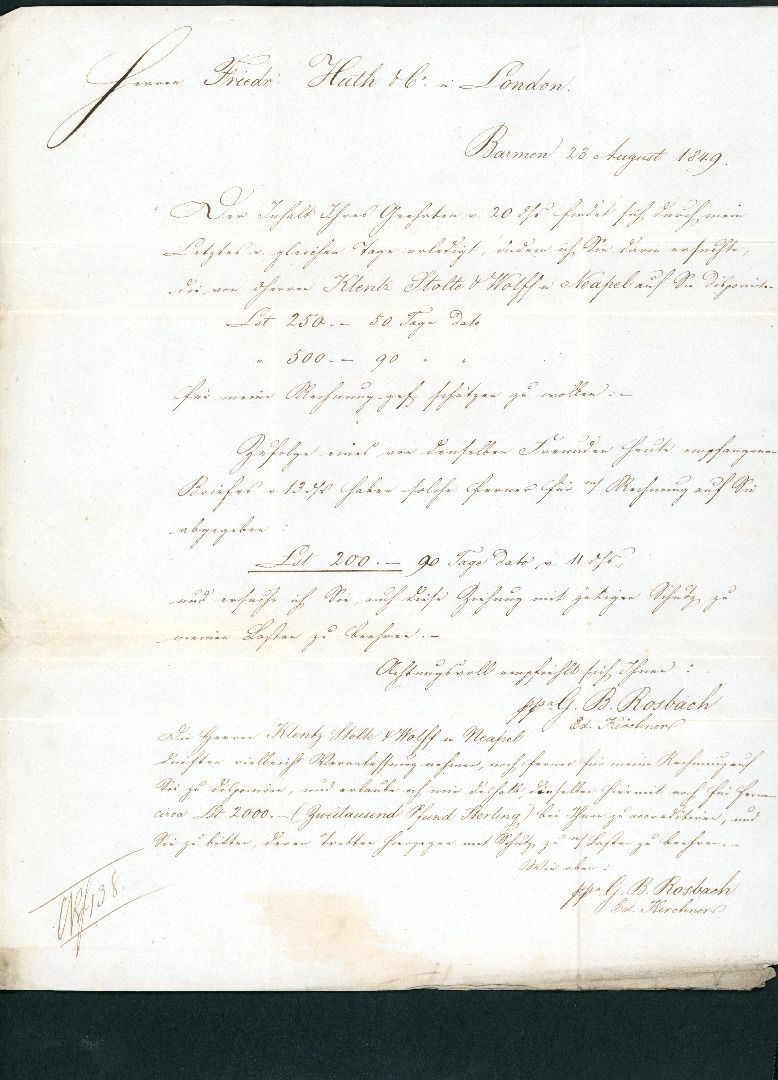 Herren Friedr. Huth & Co. in London.
Barmen 23 August 1849.
Der Inhalt Ihres Geehrten v. 20 dss findet sich durch mein
Letztes v. gleichen Tage erledigt, indem ich Sie darin ersuchte,
die von Herren Klentz Stolte & Wolff in Neapel auf Sie disponirten
Lst 250.– 50 Tage dato
" 500.– 90 " "
für meine Rechnung gef. schützen zu wollen:–
Zufolge eines von denselben Freunden heute empfangenen
Briefes v. 13 dss haben solche ferner für m/ Rechnung auf Sie
abgegeben:
Lst 200.– 90 Tage dato v. 11 dss,
und ersuche ich Sie, auch diese Ziehung mit gütigem Schutz zu
meinen Lasten zu beehren.–
Achtungsvoll empfiehlt sich Ihnen:
ppa G. B. Rosbach
Ed. Kirchner
Die Herren Klentz Stolte & Wolff in Neapel
dürften vielleicht Veranlassung nehmen, noch ferner für meine Rechnung auf
Sie zu disponiren, und erlaube ich mir deshalb, dieselben hiermit noch für fernere
circa Lst 2000.– (Zweitausend Pfund Sterling) bei Ihnen zu accreditiren, und
Sie zu bitten, deren Tratten hiergegen mit Schutz zu m/ Lasten zu beehren.–
Wie oben:
ppa G. B. Rosbach
Ed. Kirchner
138.